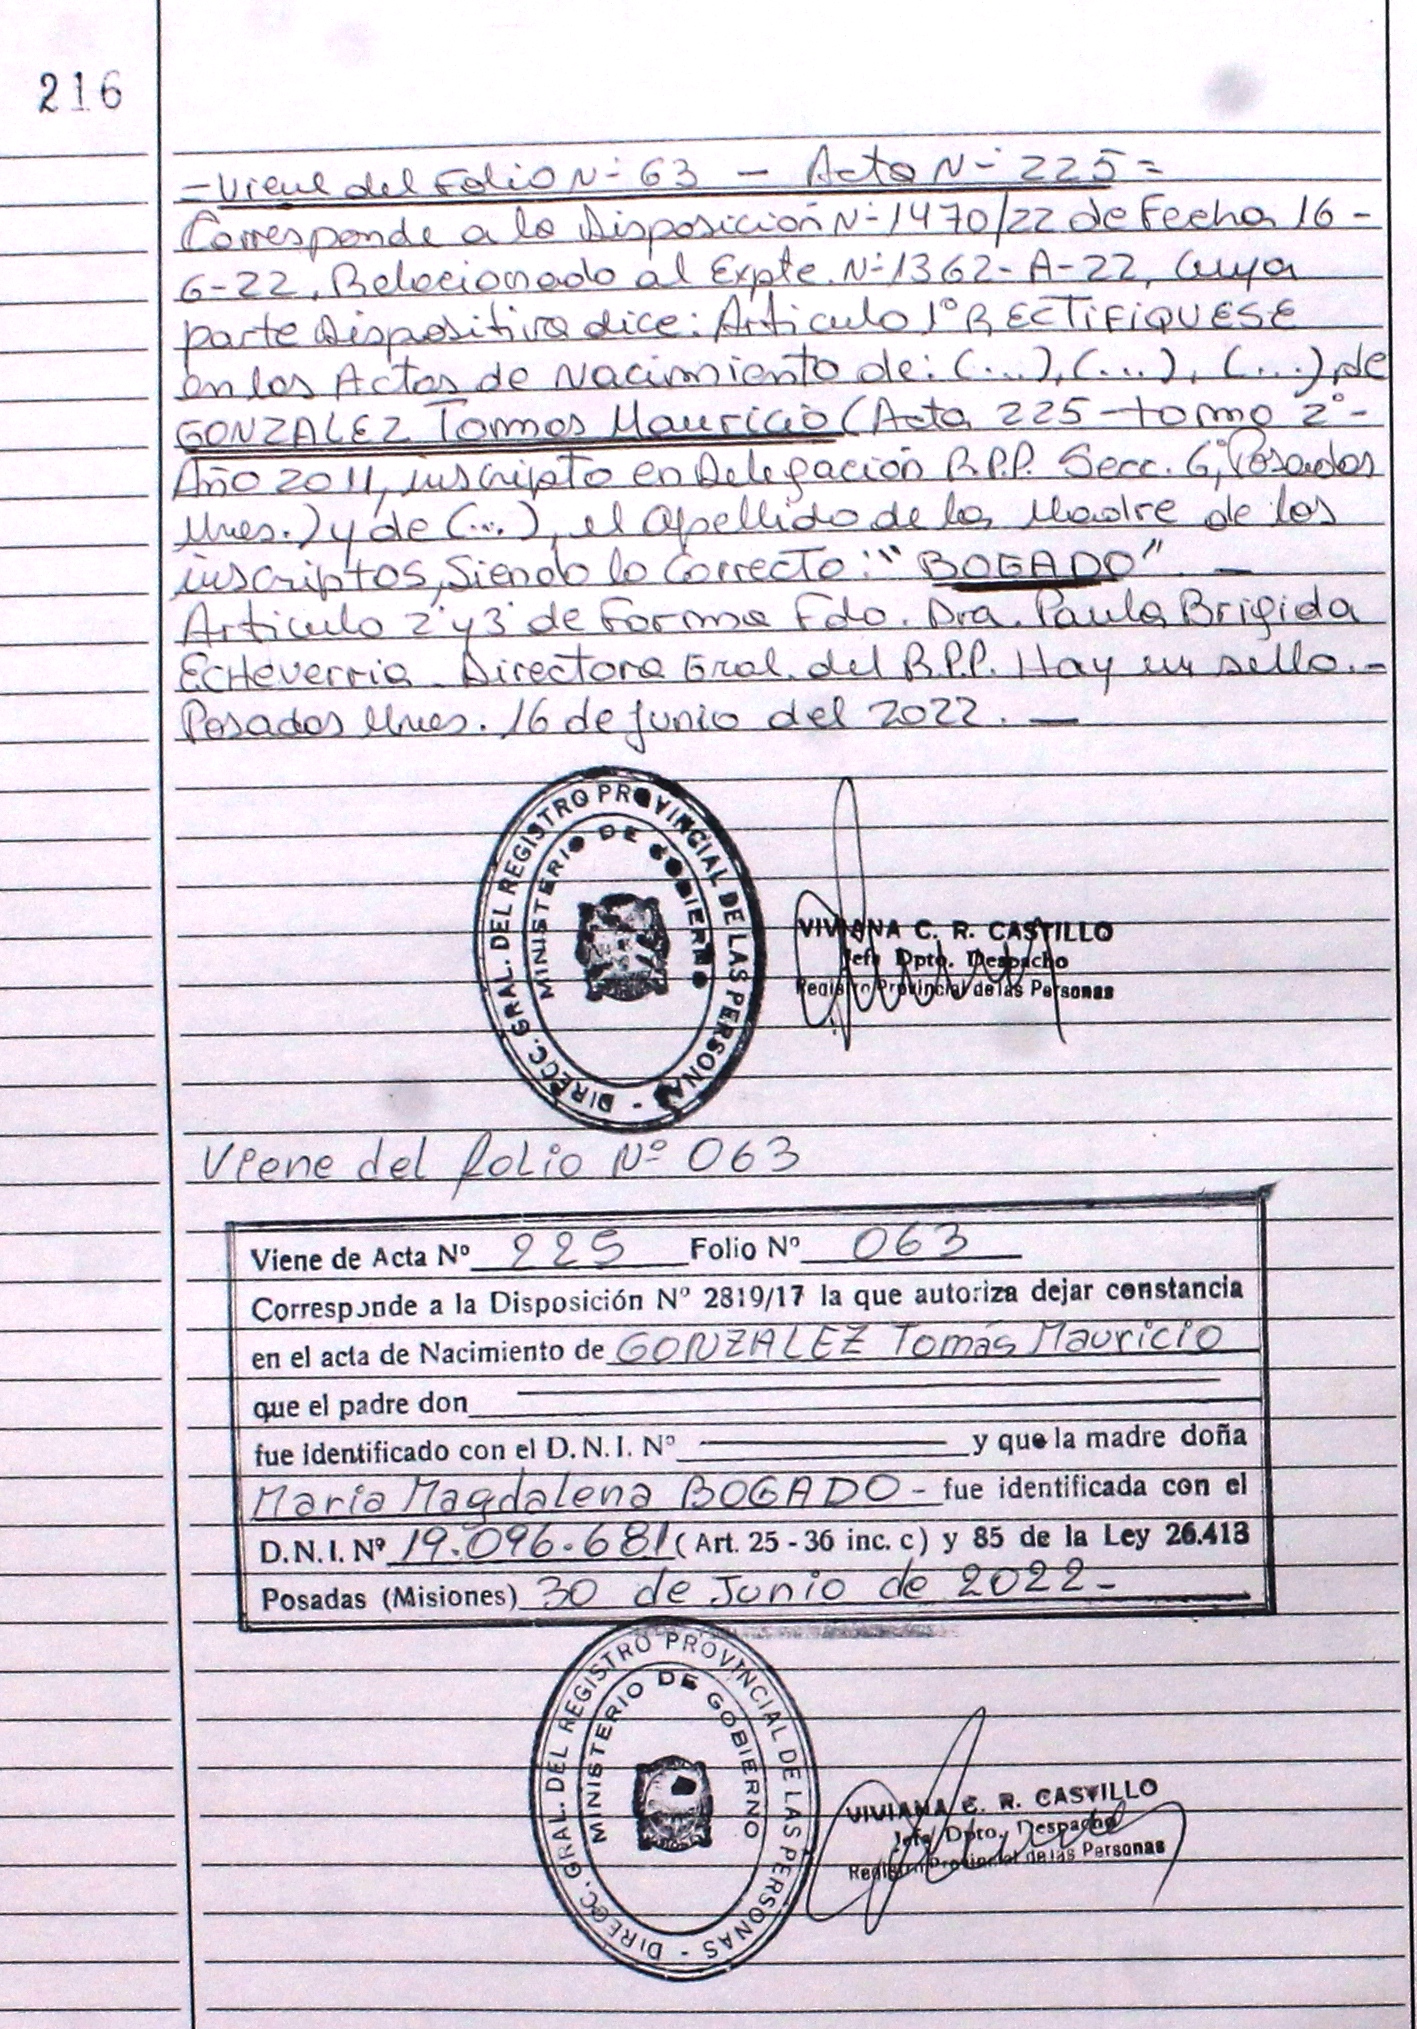 216
- Viene del Folio N° 63 - Acta N° 225 =
Corresponde a la Disposición N° 1470/22 de Fecha 16-
6-22, Relacionado al Expte. N° 1362-A-22, cuya
parte Dispositiva dice: Artículo 1° RECTIFIQUESE
en las Actas de Nacimiento de: (...), (...), (...), de
GONZALEZ Tomas Mauricio (Acta 225 - tomo 2°-
Año 2011, inscripto en Delegación R.P.P. Secc. 6°, Posadas
Mnes.) y de (...), el apellido de la Madre de los
inscriptos, Siendo lo Correcto: "BOGADO" -
Articulo 2° y 3° de Forma Fdo. Dra. Paula Brigida
Echeverria Directora Gral. del R.P.P. Hay un sello.-
Posadas Mnes. 16 de junio del 2022. -
DIRECC. GRAL. DEL REGISTRO PROVINCIAL DE LAS PERSONAS -
MINISTERIO DE GOBIERNO
VIVIANA C. R. CASTILLO
Jefa Dpto. Despacho
Registro Provincial de las Personas
Viene del folio Nº 063
Viene de Acta Nº 225 Folio Nº 063
Corresponde a la Disposición Nº 2819/17 la que autoriza dejar constancia
en el acta de Nacimiento de GONZALEZ Tomás Mauricio
que el padre don
fue identificado con el D.N.I. Nº y que la madre doña
María Magdalena BOGADO - fue identificada con el
D.N.I. Nº 19.096.681 (Art. 25 - 36 inc. c) y 85 de la Ley 26.413
Posadas (Misiones) 30 de Junio de 2022-
DIRECC. GRAL. DEL REGISTRO PROVINCIAL DE LAS PERSONAS -
MINISTERIO DE GOBIERNO
VIVIANA C. R. CASTILLO
Jefa Dpto. Despacho
Registro Provincial de las Personas